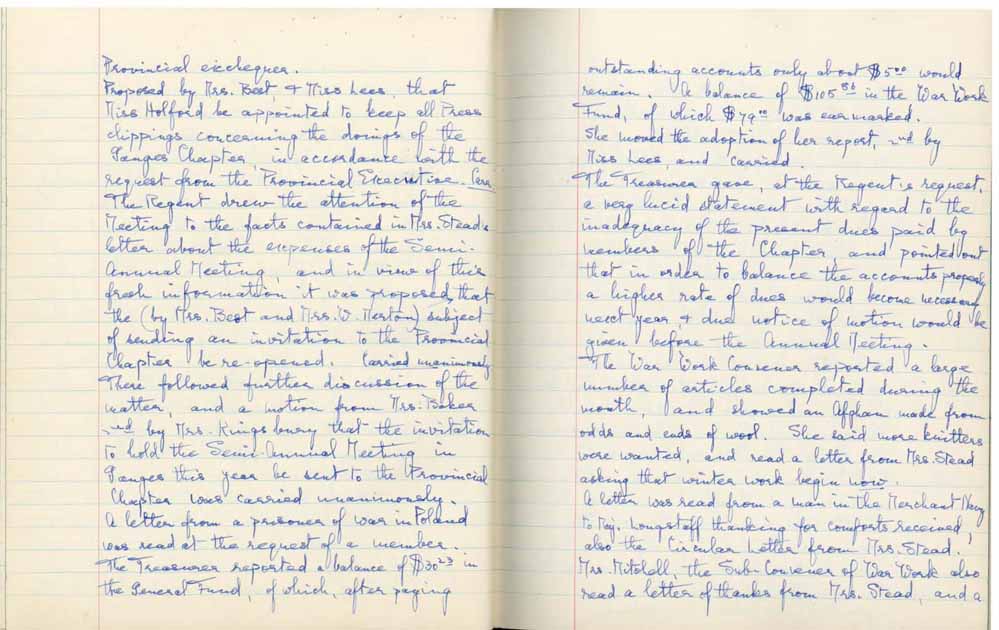 Provincial exchequer.
Proposed by Mrs. Best, & Miss Lees, that
Miss Holford be appointed to keep all Press
clippings concerning the doings of the
Ganges Chapter, in accordance with the
request from the Provincial Executive. Carr
The Regent drew the attention of the
Meeting to the facts contained in Mrs. Stead's
letter about the expenses of the Semi-
Annual Meeting, and in view of this
fresh information it was proposed, that
the (by Mrs. Best and Mrs. W. Norton) subject
of sending an invitation to the Provincial
Chapter be re-opened. Carried unanimously
There followed further discussion of the
matter, and a motion from Mrs. Baker
2nd by Mrs. Kingsbury that the invitation
to hold the Semi-Annual Meeting in
Ganges this year be sent to the Provincial
Chapter was carried unanimously.
A letter from a prisoner of war in Poland
was read at the request of a member.
The Treasurer reported a balance of $30 23 in
the General Fund, of which, after paying
outstanding accounts only about $5 00 would
remain. A balance of $105 86 in the War Work
Fund, of which $79 00 was earmarked.
She moved the adoption of her report, 2nd by
Miss Lees, and carried.
The Treasurer gave, at the Regent's request,
a very lucid statement with regard to the
inadequacy of the present dues paid by
members of the Chapter, and pointed out
that in order to balance the accounts properly
a higher rate of dues would become necessary
next year & due notice of motion would be
given before the Annual Meeting.
The War Work Convener reported a large
number of articles completed during the
month, and showed an Afghan made from
odds and ends of wool. She said more knitters
were wanted, and read a letter from Mrs. Stead
asking that winter work begin now.
A letter was read from a man in the Merchant Navy
to Maj. Longstaff thanking for comforts received,
also the Circular Letter from Mrs. Stead.
Mrs. Mitchell, the Sub-Convener of War Work also
read a letter of thanks from Mrs. Stead, and a